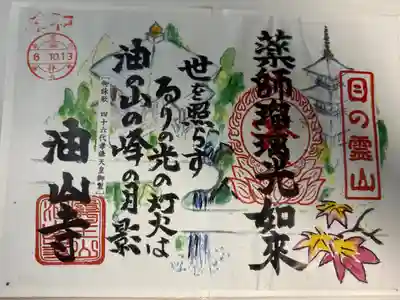 目の霊山
薬師瑠璃光如来
世を照らす
るりの光の灯火は
油の山の峰の月影
御詠歌 四十六代孝謙天皇御製
油山寺
令和
6 10.13